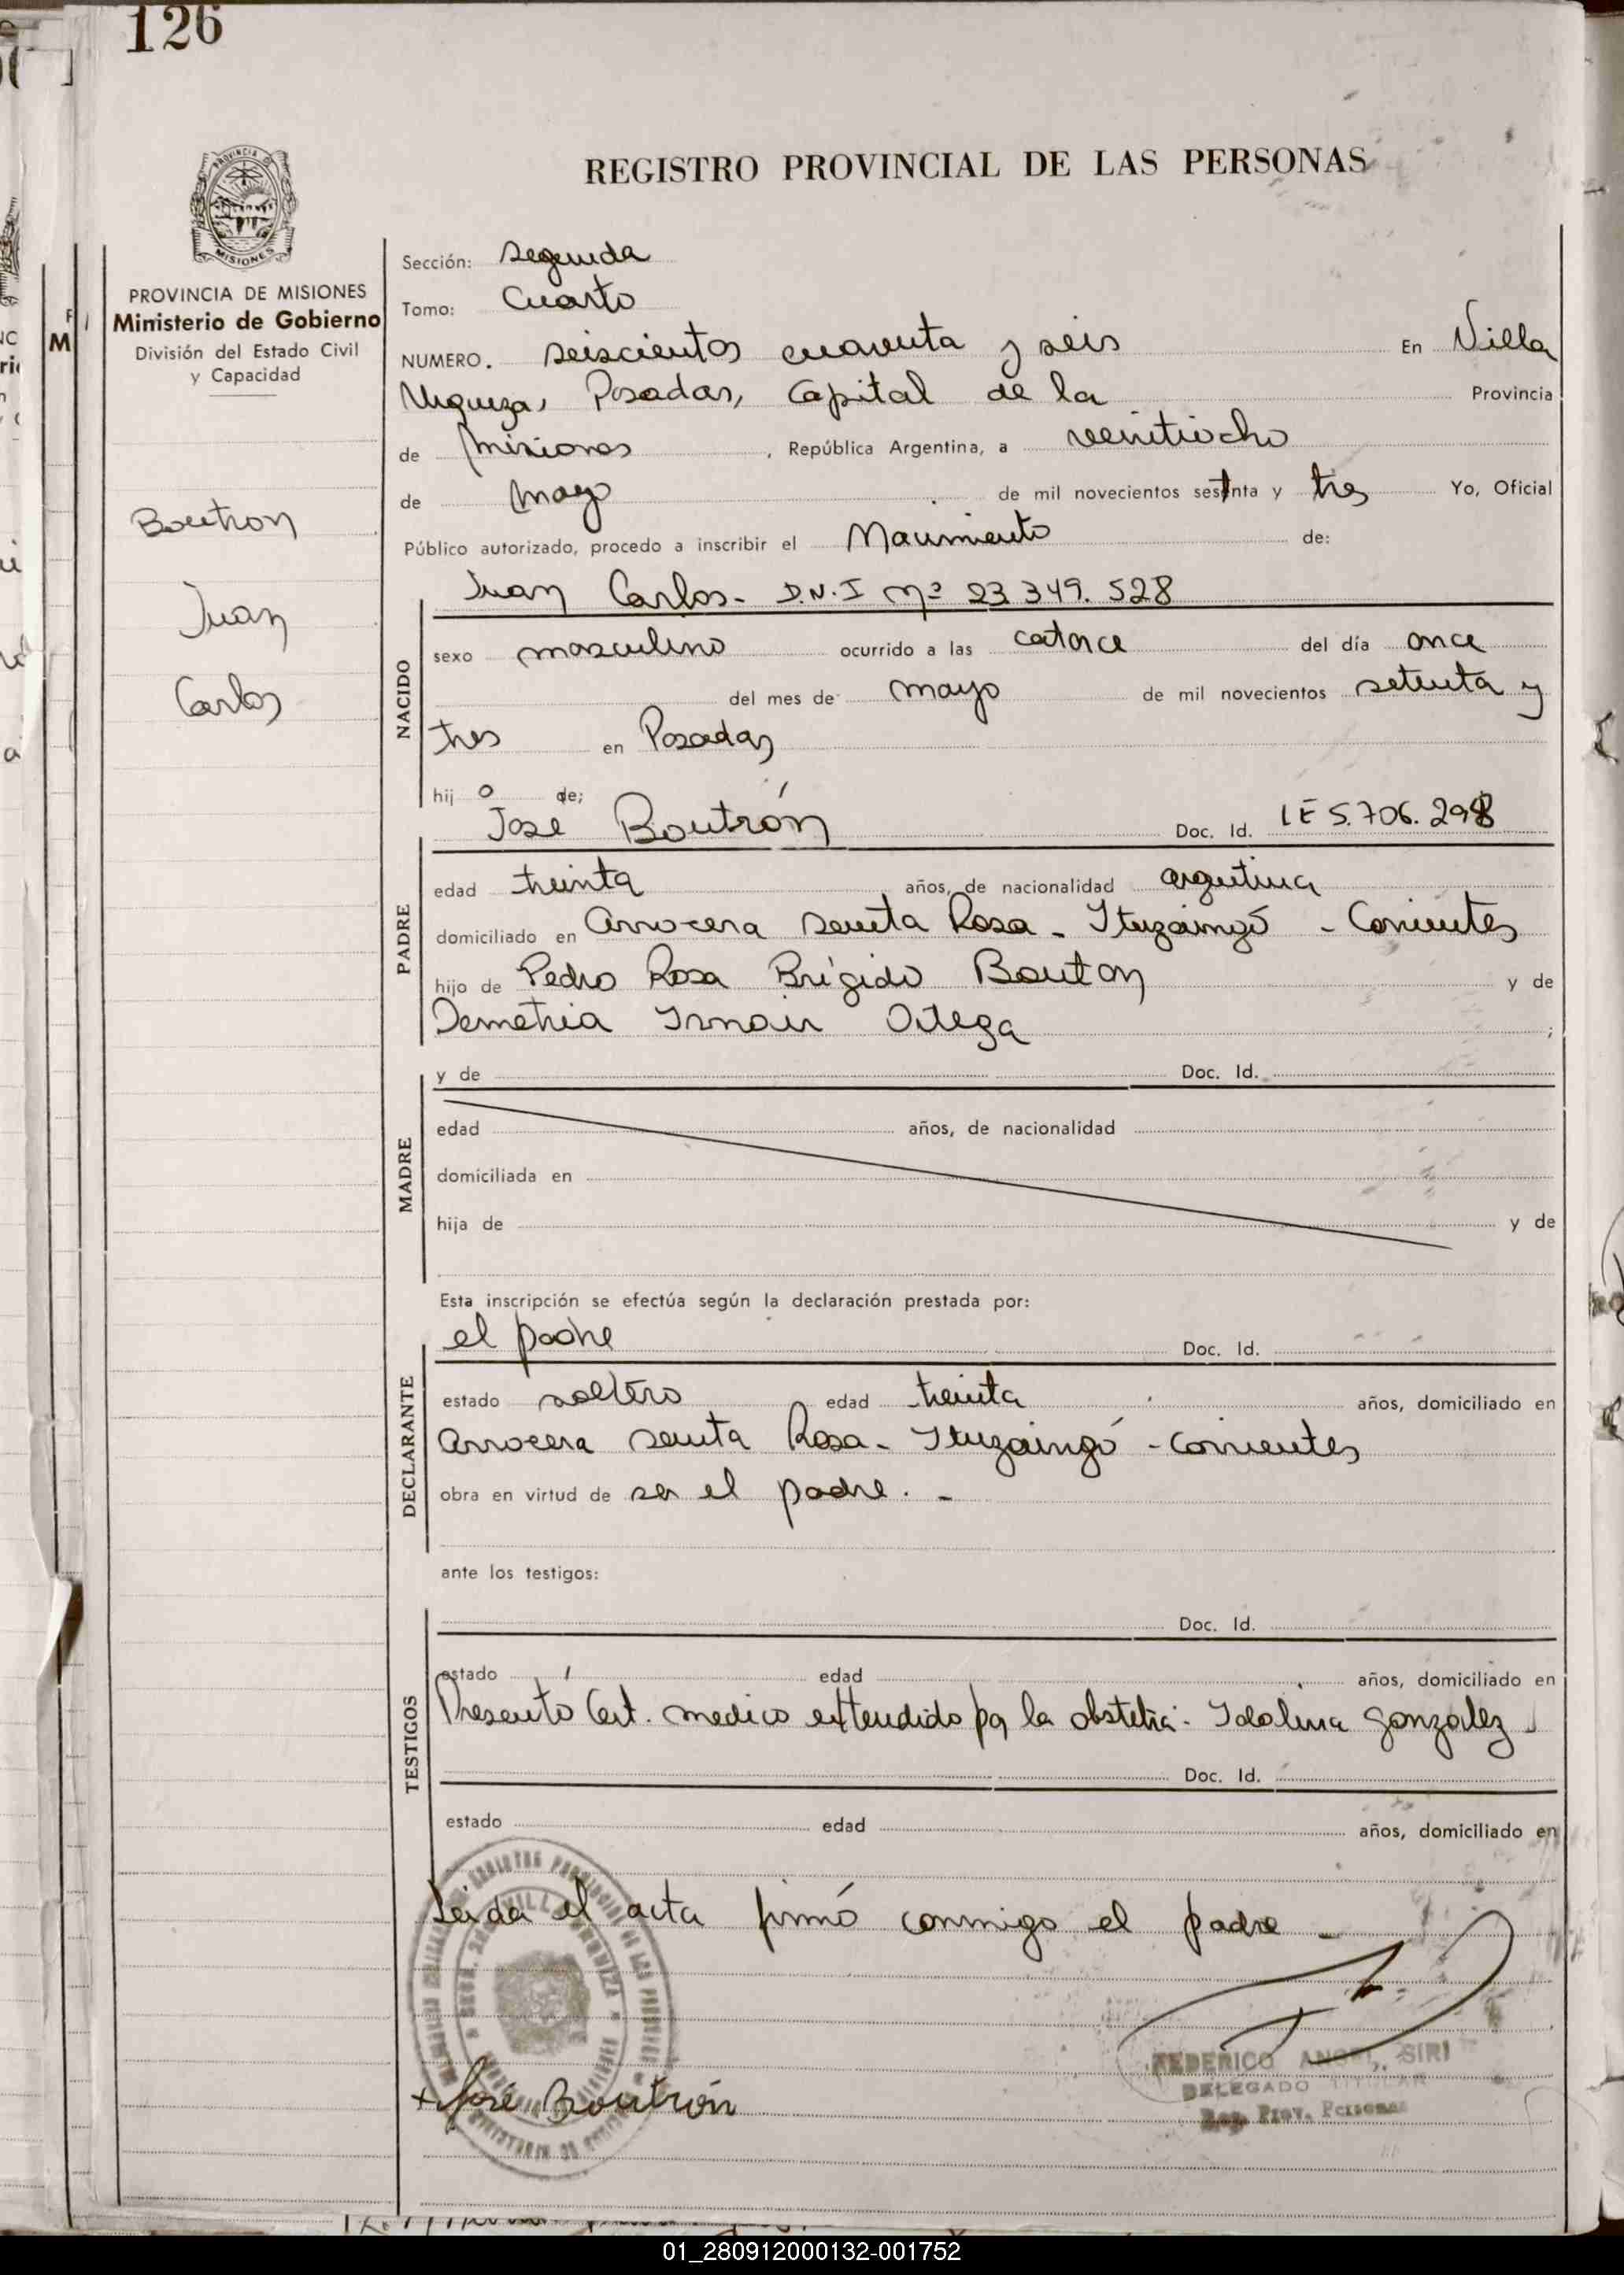 126
REGISTRO PROVINCIAL DE LAS PERSONAS
PROVINCIA DE MISIONES
Ministerio de Gobierno
División del Estado Civil
y Capacidad
Boutron
Juan
Carlos
Sección: Segunda
Tomo: Cuarto
NUMERO. seiscientos cuarenta y seis En Villa
Urquiza, Posadas, Capital de la Provincia
de Misiones, República Argentina, a veintiocho
de mayo de mil novecientos setenta y tres Yo, Oficial
Público autorizado, procedo a inscribir el Nacimiento de:
Juan Carlos - D.N.I Nº 23.349.528
NACIDO
sexo masculino ocurrido a las catorce del día once
del mes de mayo de mil novecientos setenta y
tres en Posadas
hijo de;
José Boutrón Doc. Id. LE 5.706.298
PADRE
edad treinta años, de nacionalidad argentina
domiciliado en Arrocera Santa Rosa - Ituzaingó - Corrientes
hijo de Pedro Rosa Brígido Bouton y de
Demetria Ortega ;
y de Doc. Id.
MADRE
edad años, de nacionalidad
domiciliada en
hija de y de
Esta inscripción se efectúa según la declaración prestada por:
el padre Doc. Id.
DECLARANTE
estado soltero edad treinta años, domiciliado en
Arrocera Santa Rosa - Ituzaingó - Corrientes
obra en virtud de ser el padre. -
ante los testigos:
Doc. Id.
TESTIGOS
estado edad años, domiciliado en
Presentó Cert. medico extendido por la obstetra - Idolina Gonzalez
Doc. Id.
estado edad años, domiciliado en
Leida el acta firmó conmigo el padre -
FEDERICO ANGEL SIRI
DELEGADO TITULAR
Reg. Prov. Personas
+ José Boutrón
01_280912000132-001752